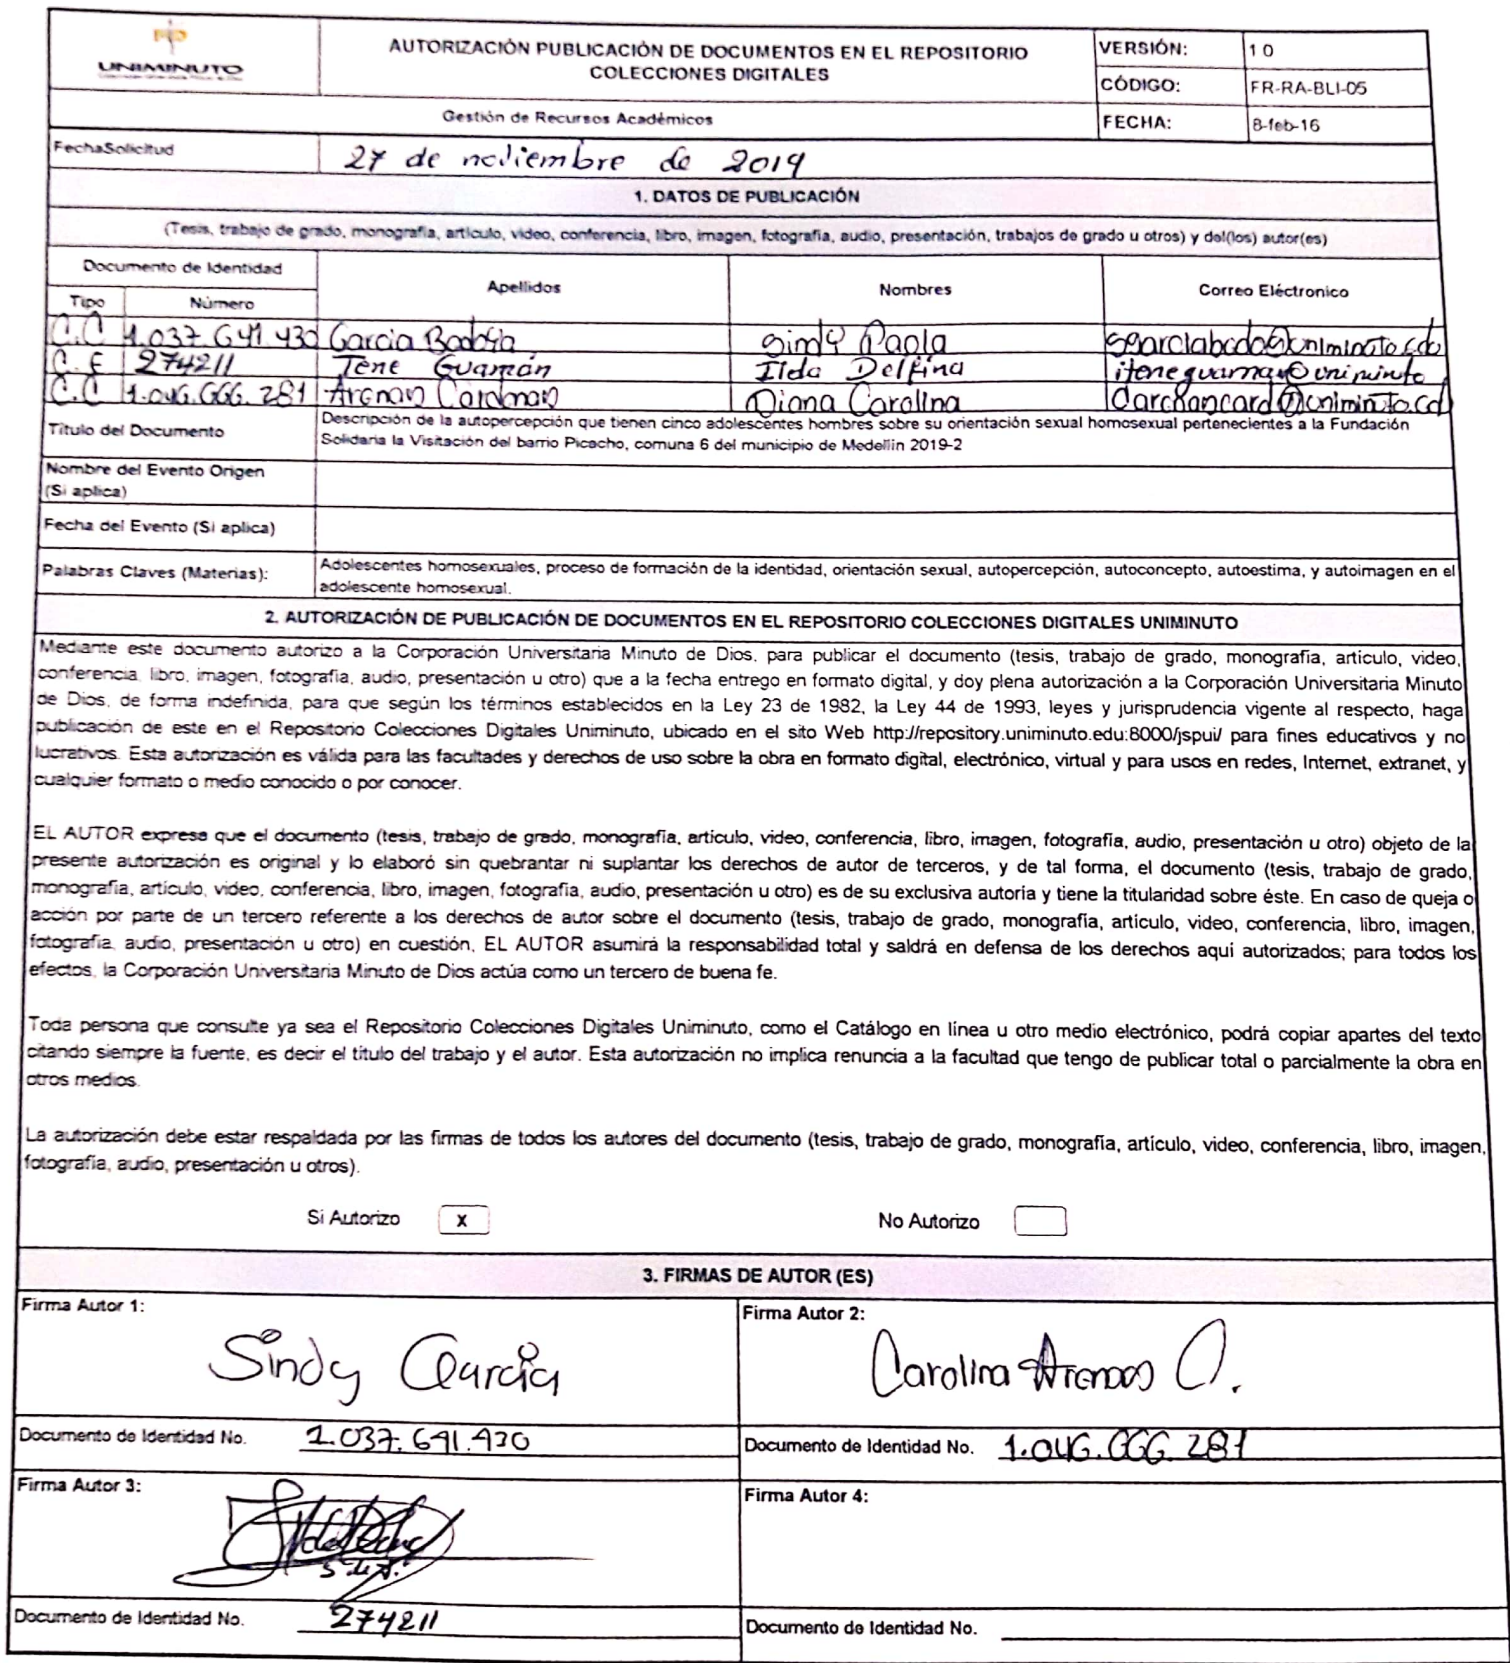 UNIMINUTO
AUTORIZACIÓN PUBLICACIÓN DE DOCUMENTOS EN EL REPOSITORIO
COLECCIONES DIGITALES
VERSIÓN: 1 0
CÓDIGO: FR-RA-BLI-05
Gestión de Recursos Académicos
FECHA: 8-feb-16
FechaSolicitud 27 de noviembre de 2019
1. DATOS DE PUBLICACIÓN
(Tesis, trabajo de grado, monografía, artículo, video, conferencia, libro, imagen, fotografía, audio, presentación, trabajos de grado u otros) y del(los) autor(es)
Documento de Identidad
Tipo Número Apellidos Nombres Correo Eléctronico
C.C 1.037.641.430 Garcia Sindy Paola
C.E 274211 Tene Guamán Ilda Delfina
C.C 1.046.666.281 Arenas Cardman Diana Carolina
Título del Documento
Descripción de la autopercepción que tienen cinco adolescentes hombres sobre su orientación sexual homosexual pertenecientes a la Fundación
Solidaria la Visitación del barrio Picacho, comuna 6 del municipio de Medellín 2019-2
Nombre del Evento Origen
(Si aplica)
Fecha del Evento (Si aplica)
Palabras Claves (Materias):
Adolescentes homosexuales, proceso de formación de la identidad, orientación sexual, autopercepción, autoconcepto, autoestima, y autoimagen en el
adolescente homosexual.
2. AUTORIZACIÓN DE PUBLICACIÓN DE DOCUMENTOS EN EL REPOSITORIO COLECCIONES DIGITALES UNIMINUTO
Mediante este documento autorizo a la Corporación Universitaria Minuto de Dios, para publicar el documento (tesis, trabajo de grado, monografía, artículo, video,
conferencia, libro, imagen, fotografía, audio, presentación u otro) que a la fecha entrego en formato digital, y doy plena autorización a la Corporación Universitaria Minuto
de Dios, de forma indefinida, para que según los términos establecidos en la Ley 23 de 1982, la Ley 44 de 1993, leyes y jurisprudencia vigente al respecto, haga
publicación de este en el Repositorio Colecciones Digitales Uniminuto, ubicado en el sito Web http://repository.uniminuto.edu:8000/jspui/ para fines educativos y no
lucrativos. Esta autorización es válida para las facultades y derechos de uso sobre la obra en formato digital, electrónico, virtual y para usos en redes, Internet, extranet, y
cualquier formato o medio conocido o por conocer.
EL AUTOR expresa que el documento (tesis, trabajo de grado, monografía, artículo, video, conferencia, libro, imagen, fotografía, audio, presentación u otro) objeto de la
presente autorización es original y lo elaboró sin quebrantar ni suplantar los derechos de autor de terceros, y de tal forma, el documento (tesis, trabajo de grado,
monografía, artículo, video, conferencia, libro, imagen, fotografía, audio, presentación u otro) es de su exclusiva autoría y tiene la titularidad sobre éste. En caso de queja o
acción por parte de un tercero referente a los derechos de autor sobre el documento (tesis, trabajo de grado, monografía, artículo, video, conferencia, libro, imagen,
fotografía, audio, presentación u otro) en cuestión, EL AUTOR asumirá la responsabilidad total y saldrá en defensa de los derechos aquí autorizados; para todos los
efectos, la Corporación Universitaria Minuto de Dios actúa como un tercero de buena fe.
Toda persona que consulte ya sea el Repositorio Colecciones Digitales Uniminuto, como el Catálogo en línea u otro medio electrónico, podrá copiar apartes del texto
citando siempre la fuente, es decir el título del trabajo y el autor. Esta autorización no implica renuncia a la facultad que tengo de publicar total o parcialmente la obra en
otros medios.
La autorización debe estar respaldada por las firmas de todos los autores del documento (tesis, trabajo de grado, monografía, artículo, video, conferencia, libro, imagen,
fotografía, audio, presentación u otros).
Si Autorizo x No Autorizo
3. FIRMAS DE AUTOR (ES)
Firma Autor 1: Firma Autor 2:
Sindy Garcia Carolina Arenas C.
Documento de Identidad No. 1.037.641.430 Documento de Identidad No. 1.046.666.281
Firma Autor 3: Firma Autor 4:
Documento de Identidad No. 274211 Documento de Identidad No.